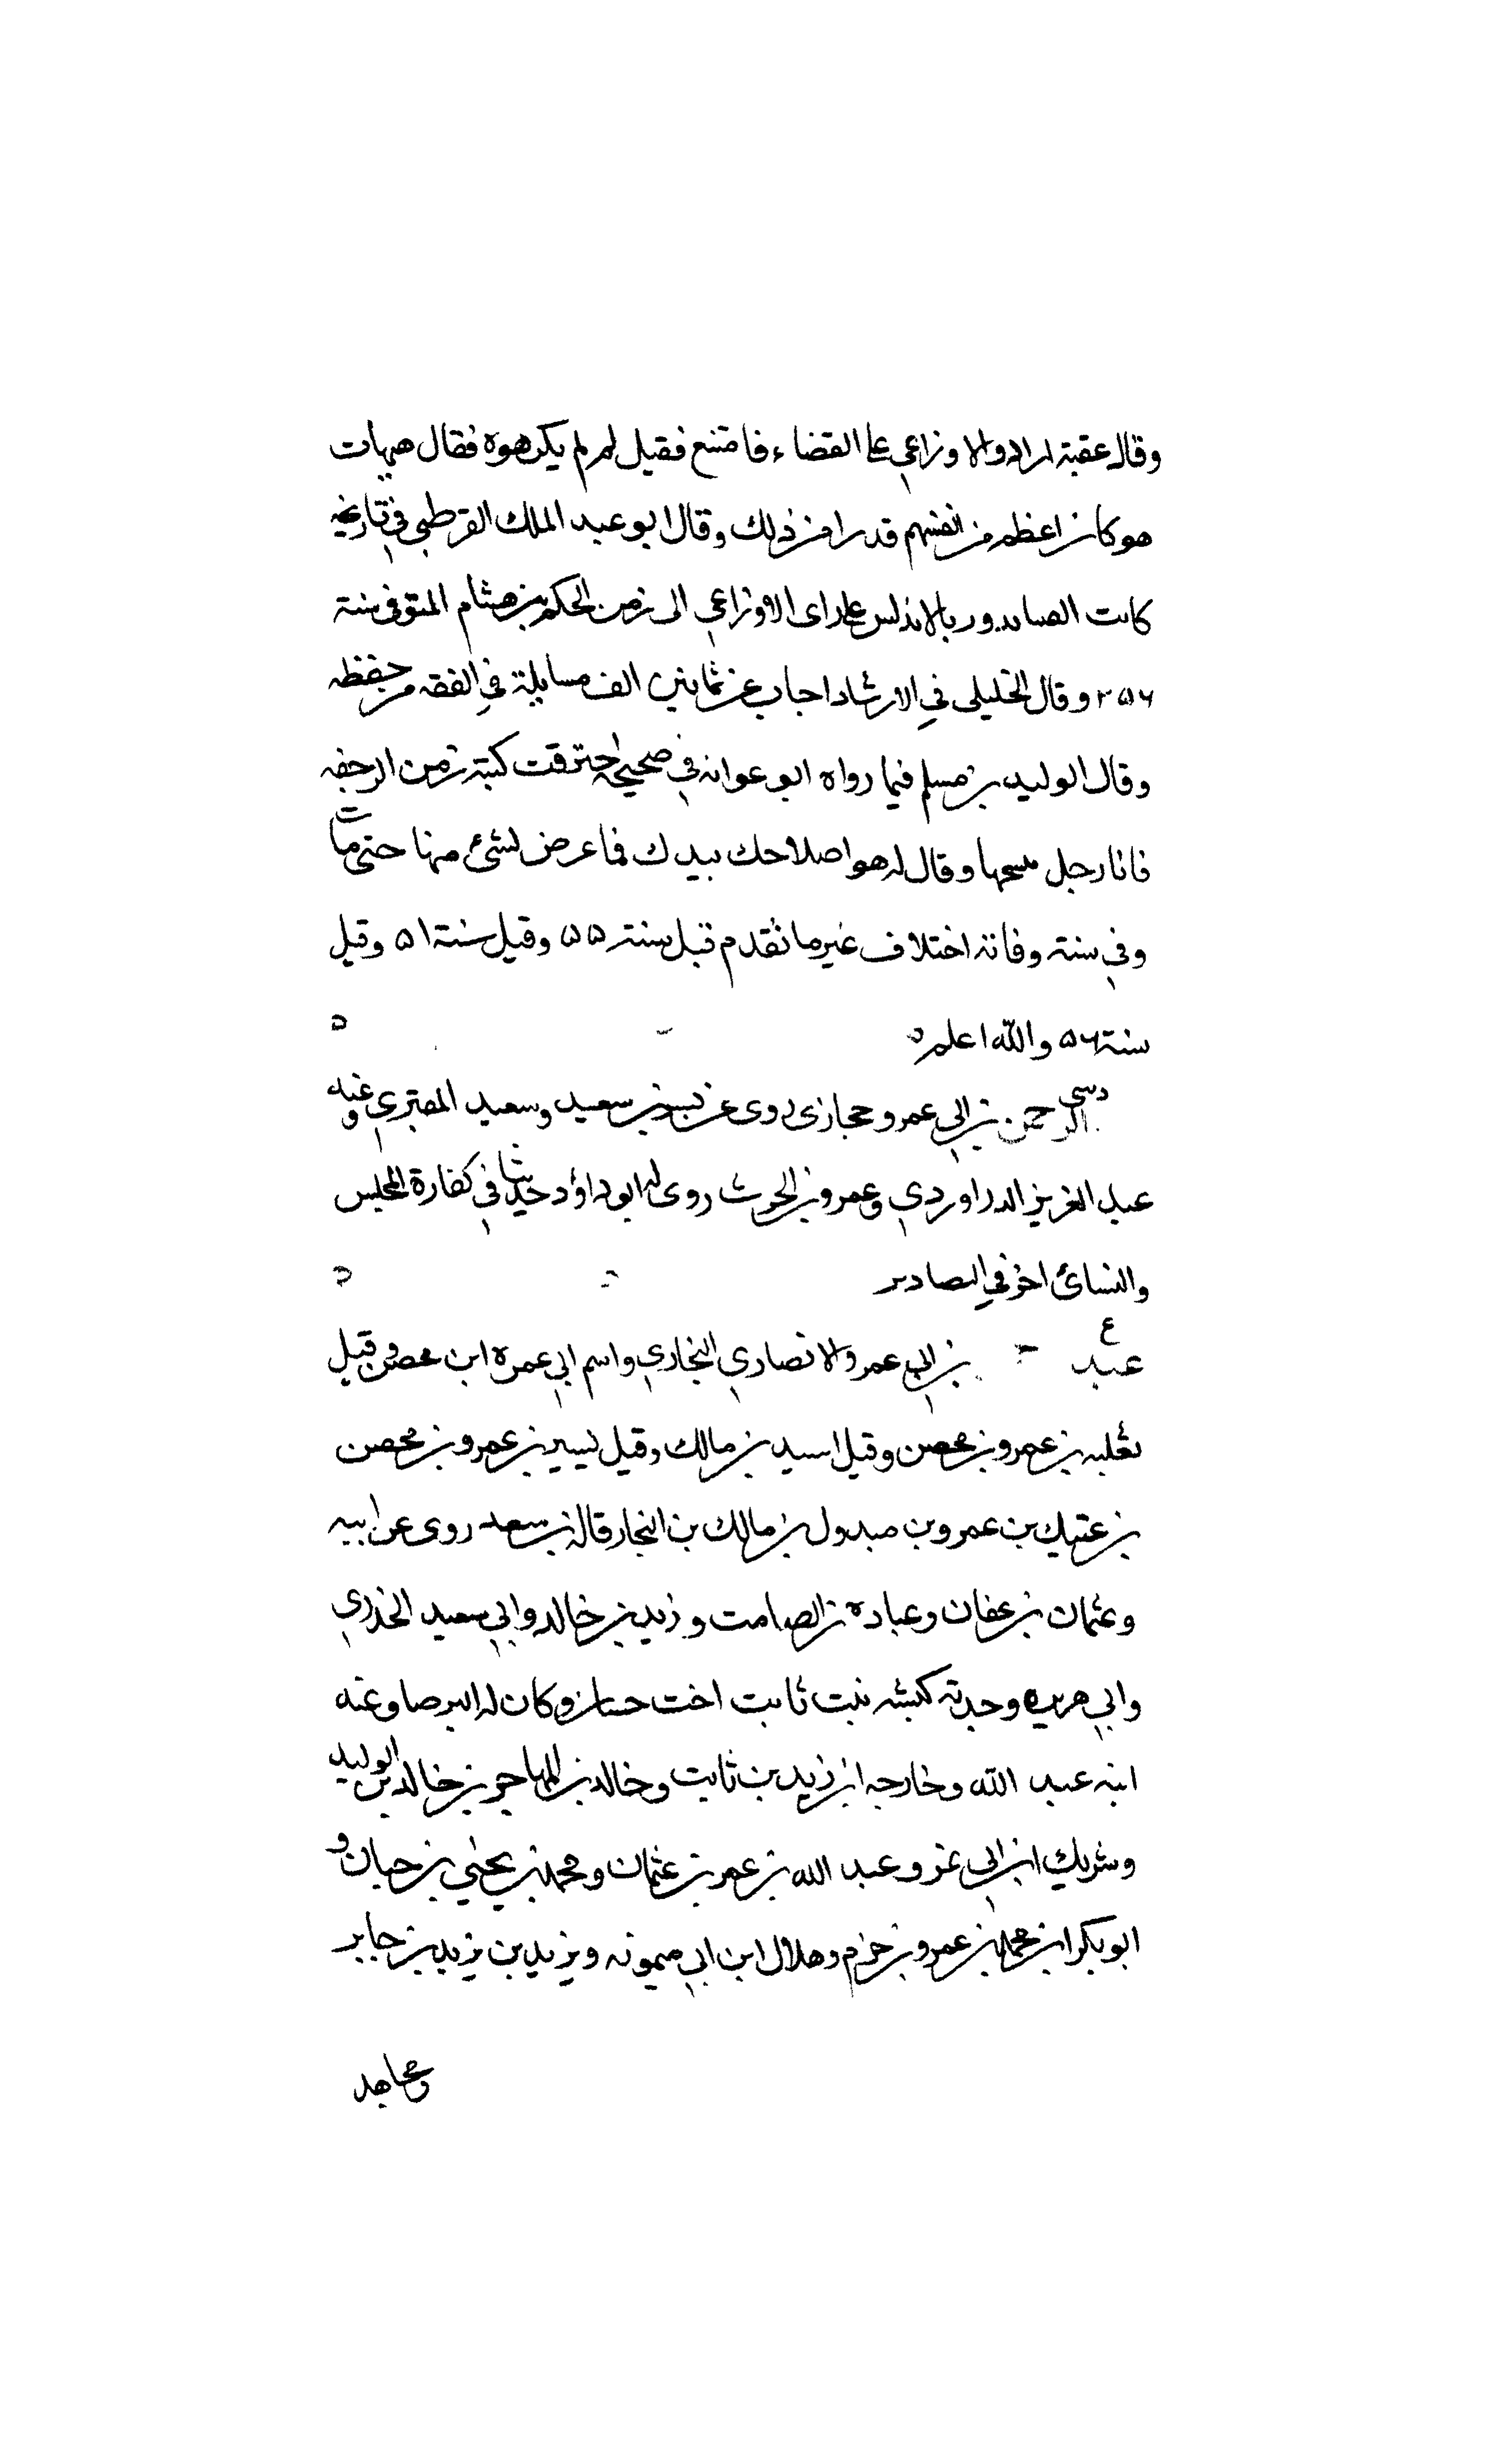 وقال عقبة ارادوا الاوزاعي على القضاء فامتنع فقيل لم لم يكرهوه فقال هيهات
هو كان اعظم من انفسهم قدرا من ذلك وقال ابو عبد الملك القرطبي في تاريخه
كانت الفتيا تدور بالاندلس على راى الاوزاعي الى زمن الحكم بن هشام المتوفى سنة
٢٥٦ وقال الخليلي في الارشاد اجاب عن ثمانين الف مسايلة في الفقه من حفظه
وقال الوليد بن مسلم فيما رواه ابو عوانه في صحيحه احترقت كتبه زمن الرجفه
فاتا رجل بنسخها وقال له هو اصلاحك بيدك فما عرض لشئ منها حتى مات
وفي سنة وفاته اختلاف غير ما تقدم قيل سنة ٥٥ وقيل سنة ٥١ وقيل
سنة ٥٦ والله اعلم ه
د سي
الرحمن بن ابي عمرو حجازى روى عن بسر بن سعيد وسعيد المقبري وعنه
عبد العزيز الدراوردي وعمرو بن الحرث روى له ابو داؤد حديثا في كفارة المجلس
والنسائ اخر في
ع
عبد بن ابي عمرو الانصاري النجاري واسم ابي عمره ابن محصن وقيل
ثعلبه بن عمرو بن محصن وقيل اسيد بن مالك وقيل يسير بن عمرو بن محصن
بن عتيك بن عمرو بن مبدول بن مالك بن النجار قاله بن سعد روى عن ابيه
وعثمان بن عفان وعباده بن الصامت وزيد بن خالد وابي سعيد الخدري
وابي هريره وجدته كبشه بنت ثابت اخت حسان وكان له البرصا وعنه
ابنه عبد الله وخارجه ابن زيد بن ثابت وخالد بن المهاجر بن خالد بن الوليد
وشريك ابن ابي نمر وعبد الله بن عمر بن عثمان ومحمد بن يحيي بن حبان و
ابو بكر ابن محمد بن عمرو بن حزم وهلال ابن ابي ميمونه ويزيد بن يزيد بن جابر
ومجاهد